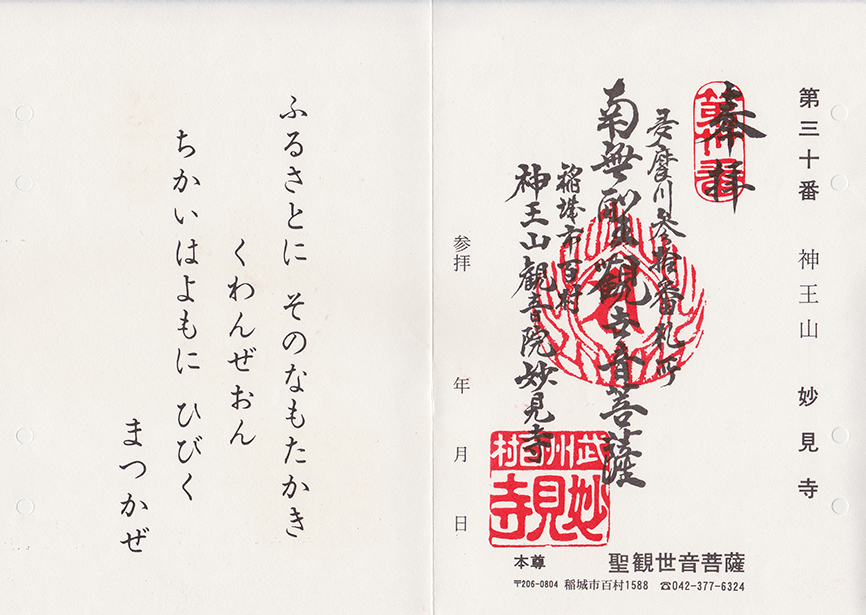 第三十番 神王山 妙見寺
奉拝
第卅番
多摩川参拾番札所
南無聖観世音菩薩
稲城市百村
神王山観音院妙見寺
武州百村
妙見寺
参拝 年 月 日
本尊 聖観世音菩薩
〒206-0804 稲城市百村1588 ☎042-377-6324
ふるさとに そのなもたかき
くわんぜおん
ちかいはよもに ひびく
まつかぜ